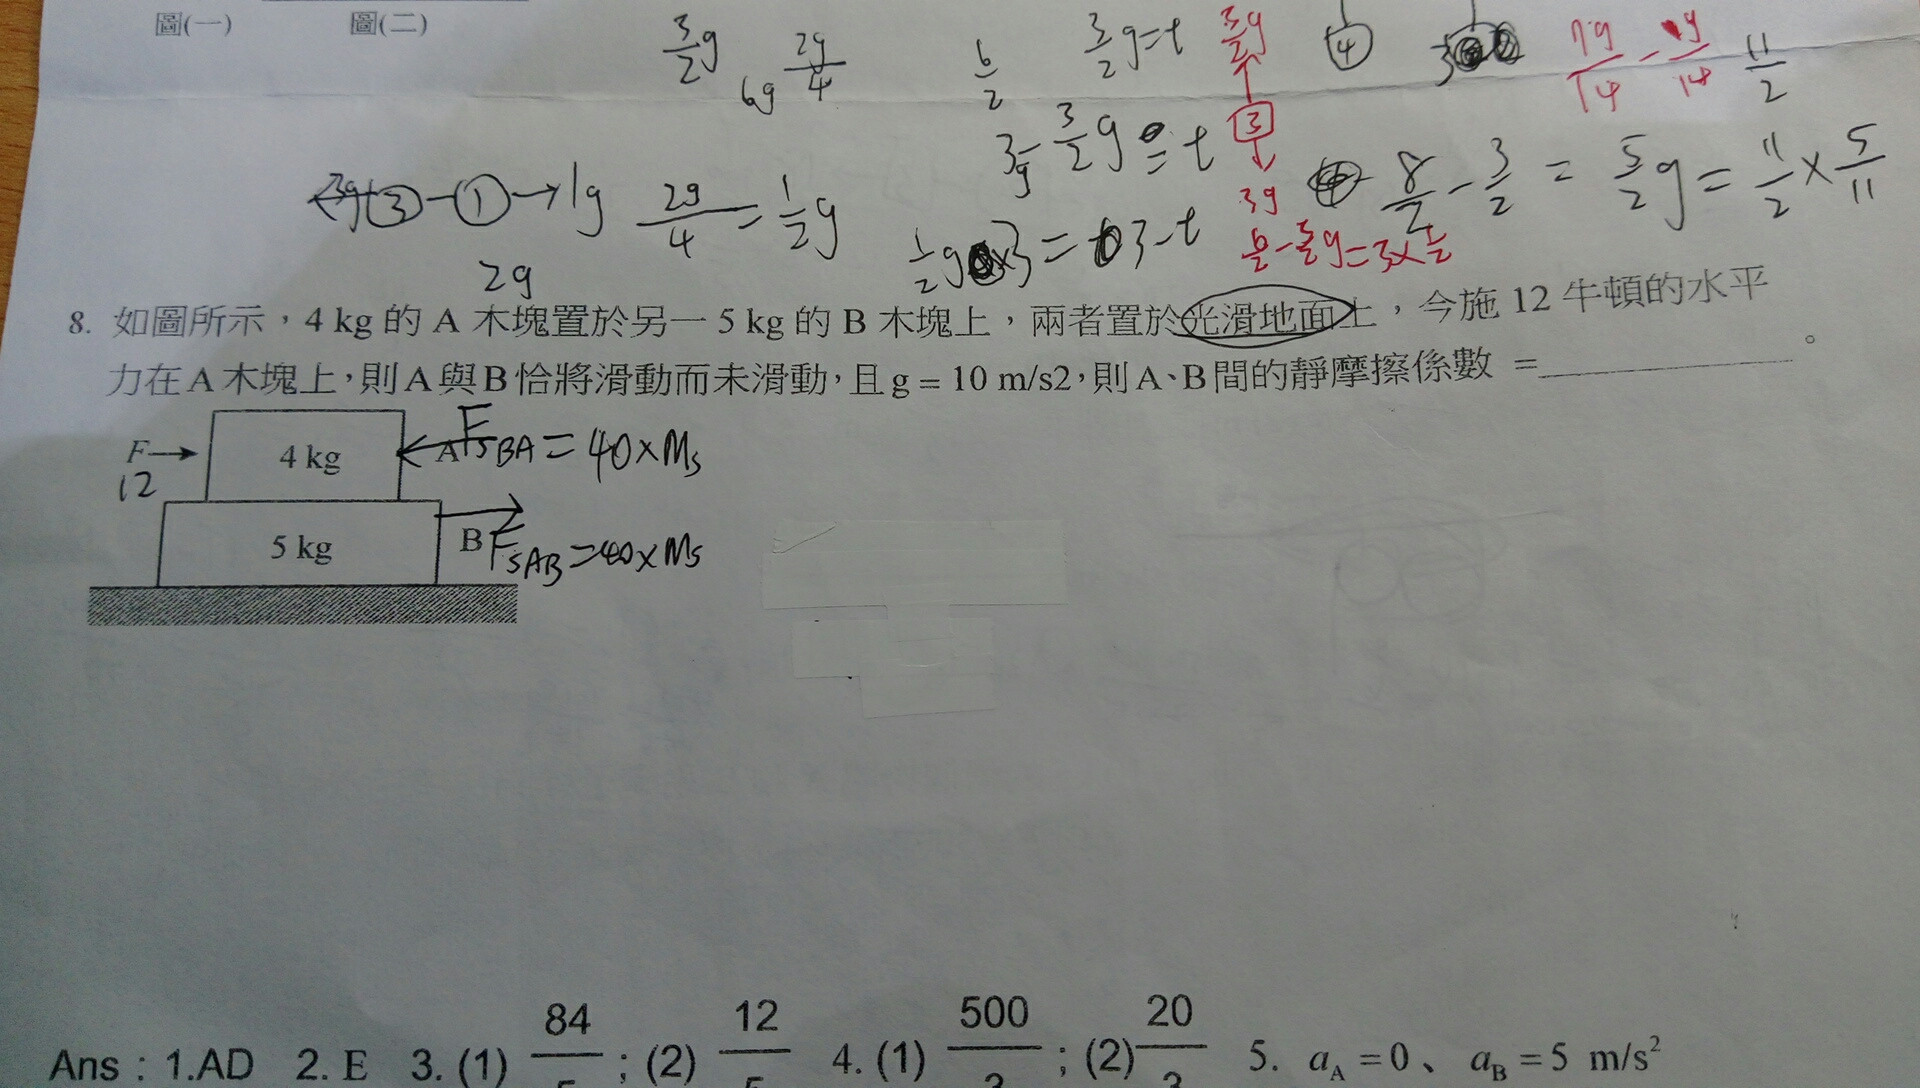 圖(一) 圖(二)
3/2 g 2g/4 6g 6/2 3/2 g=t 3/2 g ④ 3 7g/14 - g/14 11/2
3g - 3/2 g = t 3
3g ③-①→1g 2g/4 = 1/2 g 3g 8/2 - 3/2 = 5/2 g = 11/2 × 5/11
2g 1/2 g×3 = 3-t
8. 如圖所示，4 kg 的 A 木塊置於另一 5 kg 的 B 木塊上，兩者置於光滑地面上，今施 12 牛頓的水平
力在 A 木塊上，則 A 與 B 恰將滑動而未滑動，且 g = 10 m/s2，則 A、B 間的靜摩擦係數 =__________。
F→ 4 kg A FsBA = 40×Ms
12
5 kg B FsAB = 40×Ms
Ans : 1.AD 2. E 3. (1) 84/5 ; (2) 12/5 4. (1) 500/3 ; (2) 20/3 5. aA = 0、 aB = 5 m/s²